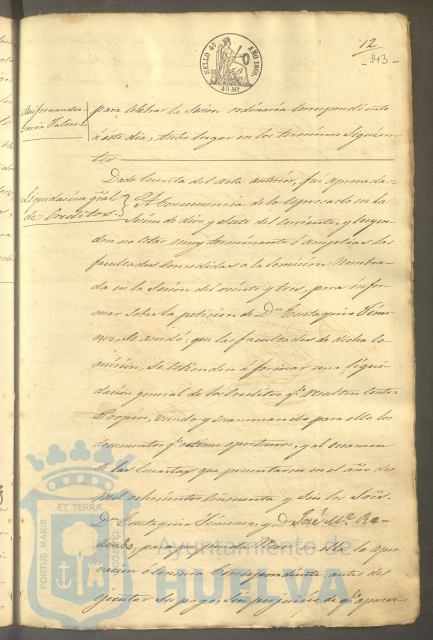 12
-143-
SELLO 4º AÑO 1860.
40 Ms
para celebrar la Sesion ordinaria correspondiente
á este dia, tubo lugar en los terminos siguien-
tes.
Dada cuenta del acta anterior, fué aprovada.
Liquidacion gral
de Creditos.
A consecuencia de lo espresado en la
Sesion de diez y siete del corriente, y siendo
muy terminante
facultades concedidas á la Comision nombra-
da en la Sesion del veinte y tres, para infor-
mar sobre la peticion de Dn Eustaquio Jime-
nez, Se acordó; que las facultades de dicha Co-
mision, se estiendan á formar una liqui-
dacion general de los Creditos qe resulten contra
Propios, viendo y examinando para ello los
documentos qe estime oportunos, y al examen
de las Cuentas que presentaron en el año de
mil ochocientos cincuenta y seis los Sres
Dn Eustaquio Jimenez, y D. José Mª Re-
dondo, para
correspondiente, antes de
ejecutar su pago, sin perjuicio de qe aparez-
ET TERRÆ
PORTUS MARIS
Ayuntamiento de
HUELVA